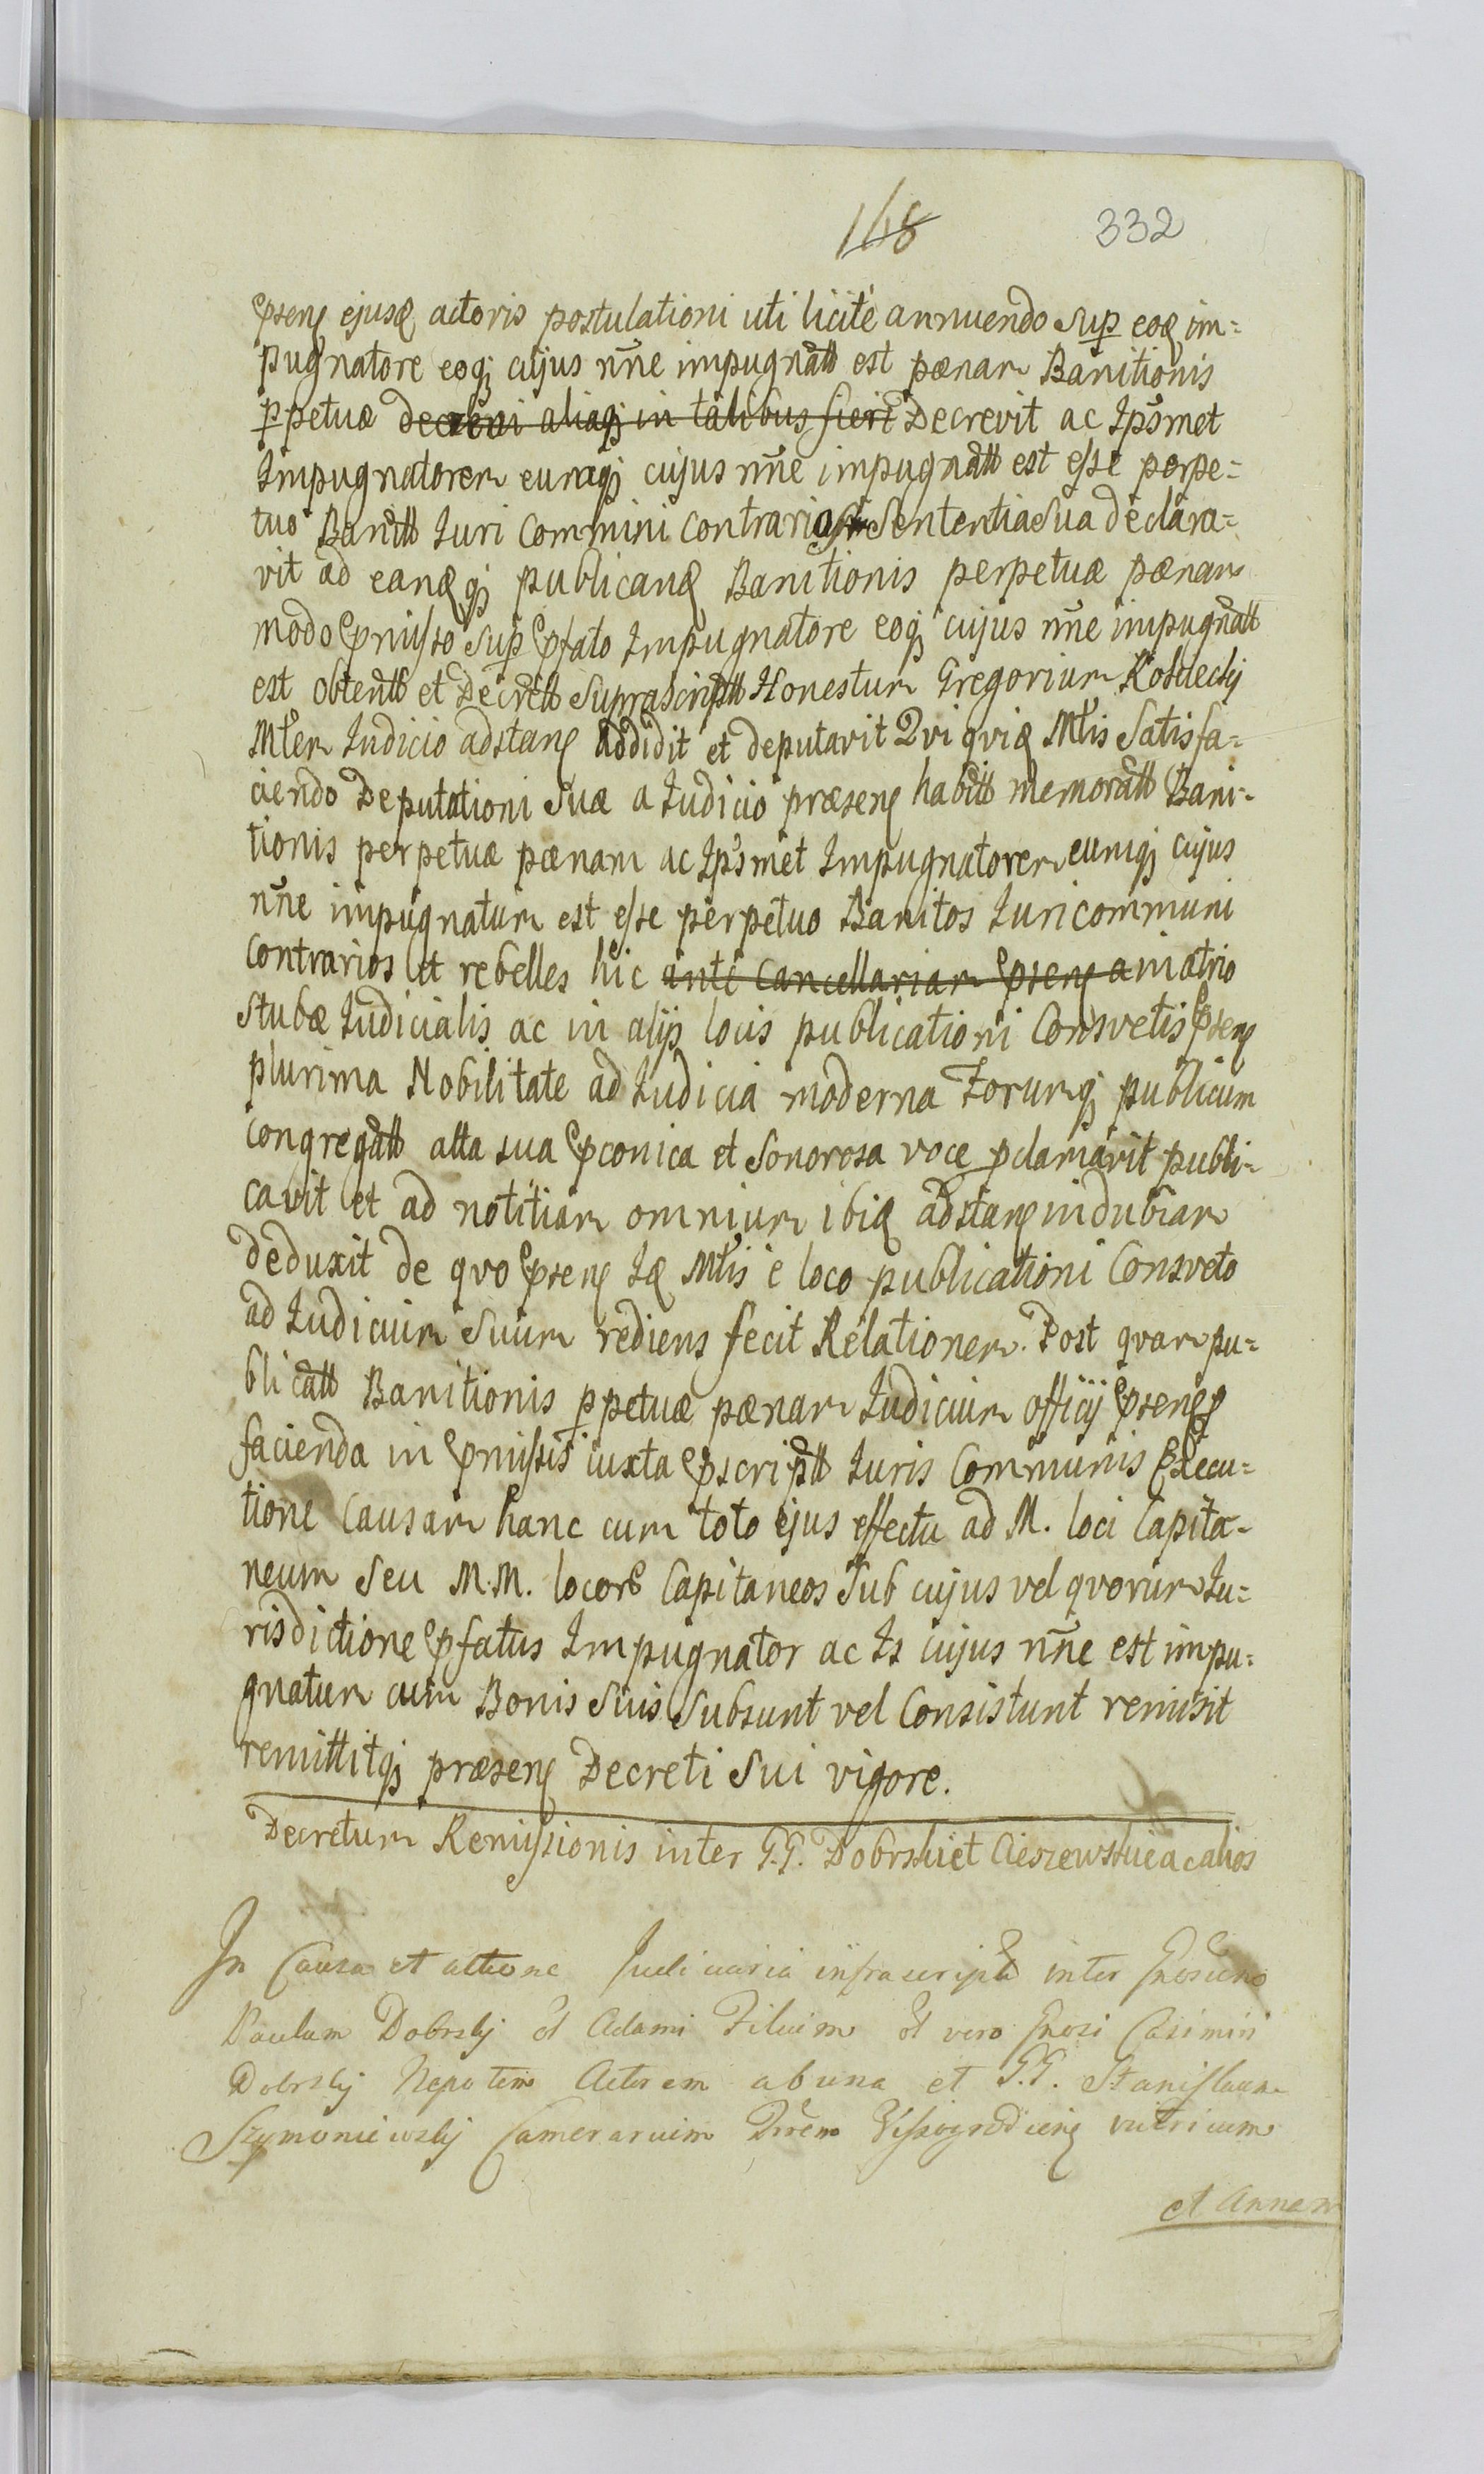 148 332
Pseng ejusq actoris postulationi uti licitè annuendo sup eoq im=
pugnatore eoqj cujus nñe impugnatt est pœnam Banitionis
ppetuæ decreni aliaqj in talibus fieri Decrevit ac Ipsmet
Impugnatorem eumqj cujus nñe impugnatt est esse perpe=
tuo Banitt Iuri Commini contrarios Sententia Sua declara=
vit ad eanqqj publicanq Banitionis perpetuæ pœnam
modo Pmisso Sup Pfato Impugnatore eoqj cujus nñe impugnatt
est obtentt et Decrett Suprascriptt Honestum Gregorium
Mtlem Iudicio adstang addidit et deputavit Qvi qviq Mtlis Satisfa=
ciendo Deputationi Suæ a Iudicio præseng habitt memoratt Bani=
tionis perpetuæ pœnam ac Ipsmet Impugnatorem eumqj cujus
nñe impugnatum est esse perpetuo Banitos Iuri communi
Contrarios et rebelles hic ante Cancellariam Pseng in atrio
Stubæ Iudicialis ac in alijs locis publicationi Consvetis Pseng
plurima Nobilitate ad Iudicia moderna Forumqj publicum
congregatt alta sua Pconica et Sonorosa voce pclamavit publi=
cavit et ad notitiam omnium ibiq adstang indubiam
deduxit de qvo Pseng Iq Mtlis è loco publicationi Consveto
ad Iudicium Suum rediens fecit Relationem. Post qvam pu=
blicatt Banitionis ppetuæ pœnam Iudicium officij Pseng p
facienda in Pmissis iuxta Pscriptt Iuris Communis Execu=
tione Causam hanc cum toto ejus effectu ad M. loci Capita=
neum Seu M.M. locorb Capitaneos Sub cujus vel qvorum Iu=
risdictione Pfatus Impugnator ac Is cujus nñe est impu=
gnatum cum Bonis Suis Subsunt vel Consistunt remisit
remittitqj præseng Decreti Sui vigore.
Decretum Remissionis inter G.G. Dobrski et Cieszewskie ac alios
In Causa et actione Judiciaria infrascripta inter Gnosum
Paulum Dobrskj olt Adami Filium olt vero Gnosi Casimiri
Dobrskj Nepotem Actorem ab una et G.G. Stanislaum
Szymoniewskj Camerarium Vissogrodieng vitricum
et Annam